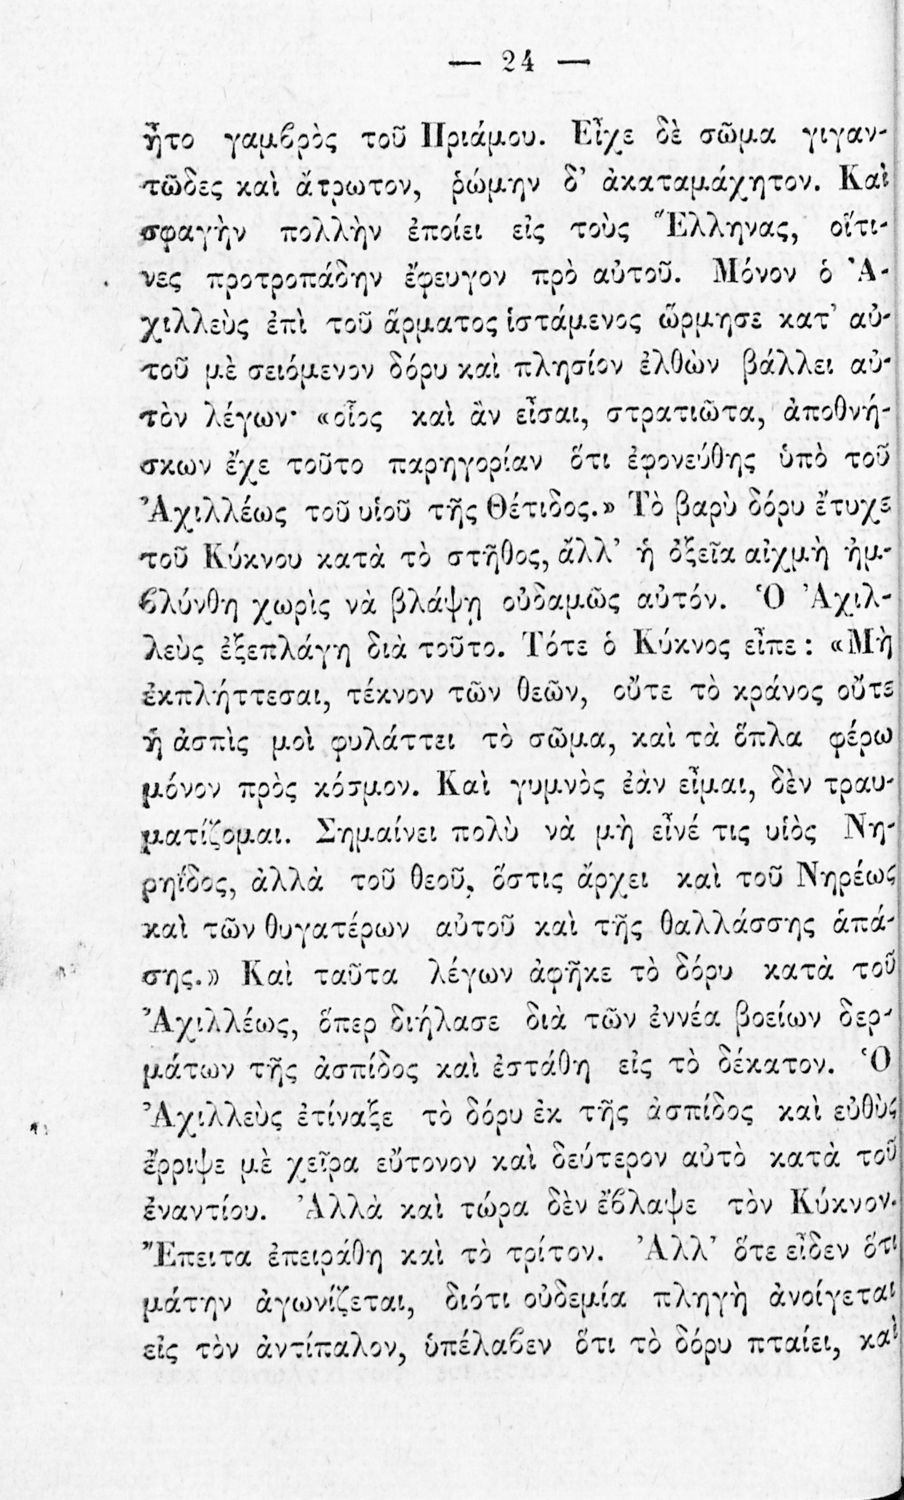 — 24 —
ἦτο γαμϐρὸς τοῦ Πριάμου. Εἶχε δὲ σῶμα γιγαν-
τῶδες καὶ ἄτρωτον, ῥώμην δ’ ἀκαταμάχητον. Καὶ
σφαγὴν πολλὴν ἐποίει εἰς τοὺς Ἕλληνας, οἵτι-
νες προτροπάδην ἔφευγον πρὸ αὐτοῦ. Μόνον ὁ Ἀ-
χιλλεὺς ἐπὶ τοῦ ἅρματος ἱστάμενος ὥρμησε κατ’ αὐ-
τοῦ μὲ σειόμενον δόρυ καὶ πλησίον ἐλθὼν βάλλει αὐ-
τὸν λέγων· «οἷος καὶ ἂν εἶσαι, στρατιῶτα, ἀποθνή-
σκων ἔχε τοῦτο παρηγορίαν ὅτι ἐφονεύθης ὑπὸ τοῦ
Ἀχιλλέως τοῦ υἱοῦ τῆς Θέτιδος.» Τὸ βαρὺ δόρυ ἔτυχε
τοῦ Κύκνου κατὰ τὸ στῆθος, ἄλλ’ ἡ ὀξεῖα αἰχμὴ ἠμ-
ϐλύνθη χωρὶς νὰ βλάψῃ οὐδαμῶς αὐτόν. Ὁ Ἀχιλ-
λεὺς ἐξεπλάγη διὰ τοῦτο. Τότε ὁ Κύκνος εἶπε : «Μὴ
ἐκπλήττεσαι, τέκνον τῶν θεῶν, οὔτε τὸ κράνος οὔτε
ἡ ἀσπὶς μοὶ φυλάττει τὸ σῶμα, καὶ τὰ ὅπλα φέρω
μόνον πρὸς κόσμον. Καὶ γυμνὸς ἐὰν εἶμαι, δὲν τραυ-
ματίζομαι. Σημαίνει πολὺ νὰ μὴ εἶνέ τις υἱὸς Νη-
ρηΐδος, ἀλλὰ τοῦ θεοῦ, ὅστις ἄρχει καὶ τοῦ Νηρέως
καὶ τῶν θυγατέρων αὐτοῦ καὶ τῆς θαλλάσσης ἁπά-
σης.» Καὶ ταῦτα λέγων ἀφῆκε τὸ δόρυ κατὰ τοῦ
Ἀχιλλέως, ὅπερ διήλασε διὰ τῶν ἐννέα βοείων δερ-
μάτων τῆς ἀσπίδος καὶ ἐστάθη εἰς τὸ δέκατον. Ὁ
Ἀχιλλεὺς ἐτίναξε τὸ δόρυ ἐκ τῆς ἀσπίδος καὶ εὐθὺς
ἔρριψε μὲ χεῖρα εὔτονον καὶ δεύτερον αὐτὸ κατὰ τοῦ
ἐναντίου. Ἀλλὰ καὶ τώρα δὲν ἔϐλαψε τὸν Κύκνον.
Ἔπειτα ἐπειράθη καὶ τὸ τρίτον. Ἀλλ’ ὅτε εἶδεν ὅτι
μάτην ἀγωνίζεται, διότι οὐδεμία πληγὴ ἀνοίγεται
εἰς τὸν ἀντίπαλον, ὑπέλαϐεν ὅτι τὸ δόρυ πταίει, καὶ